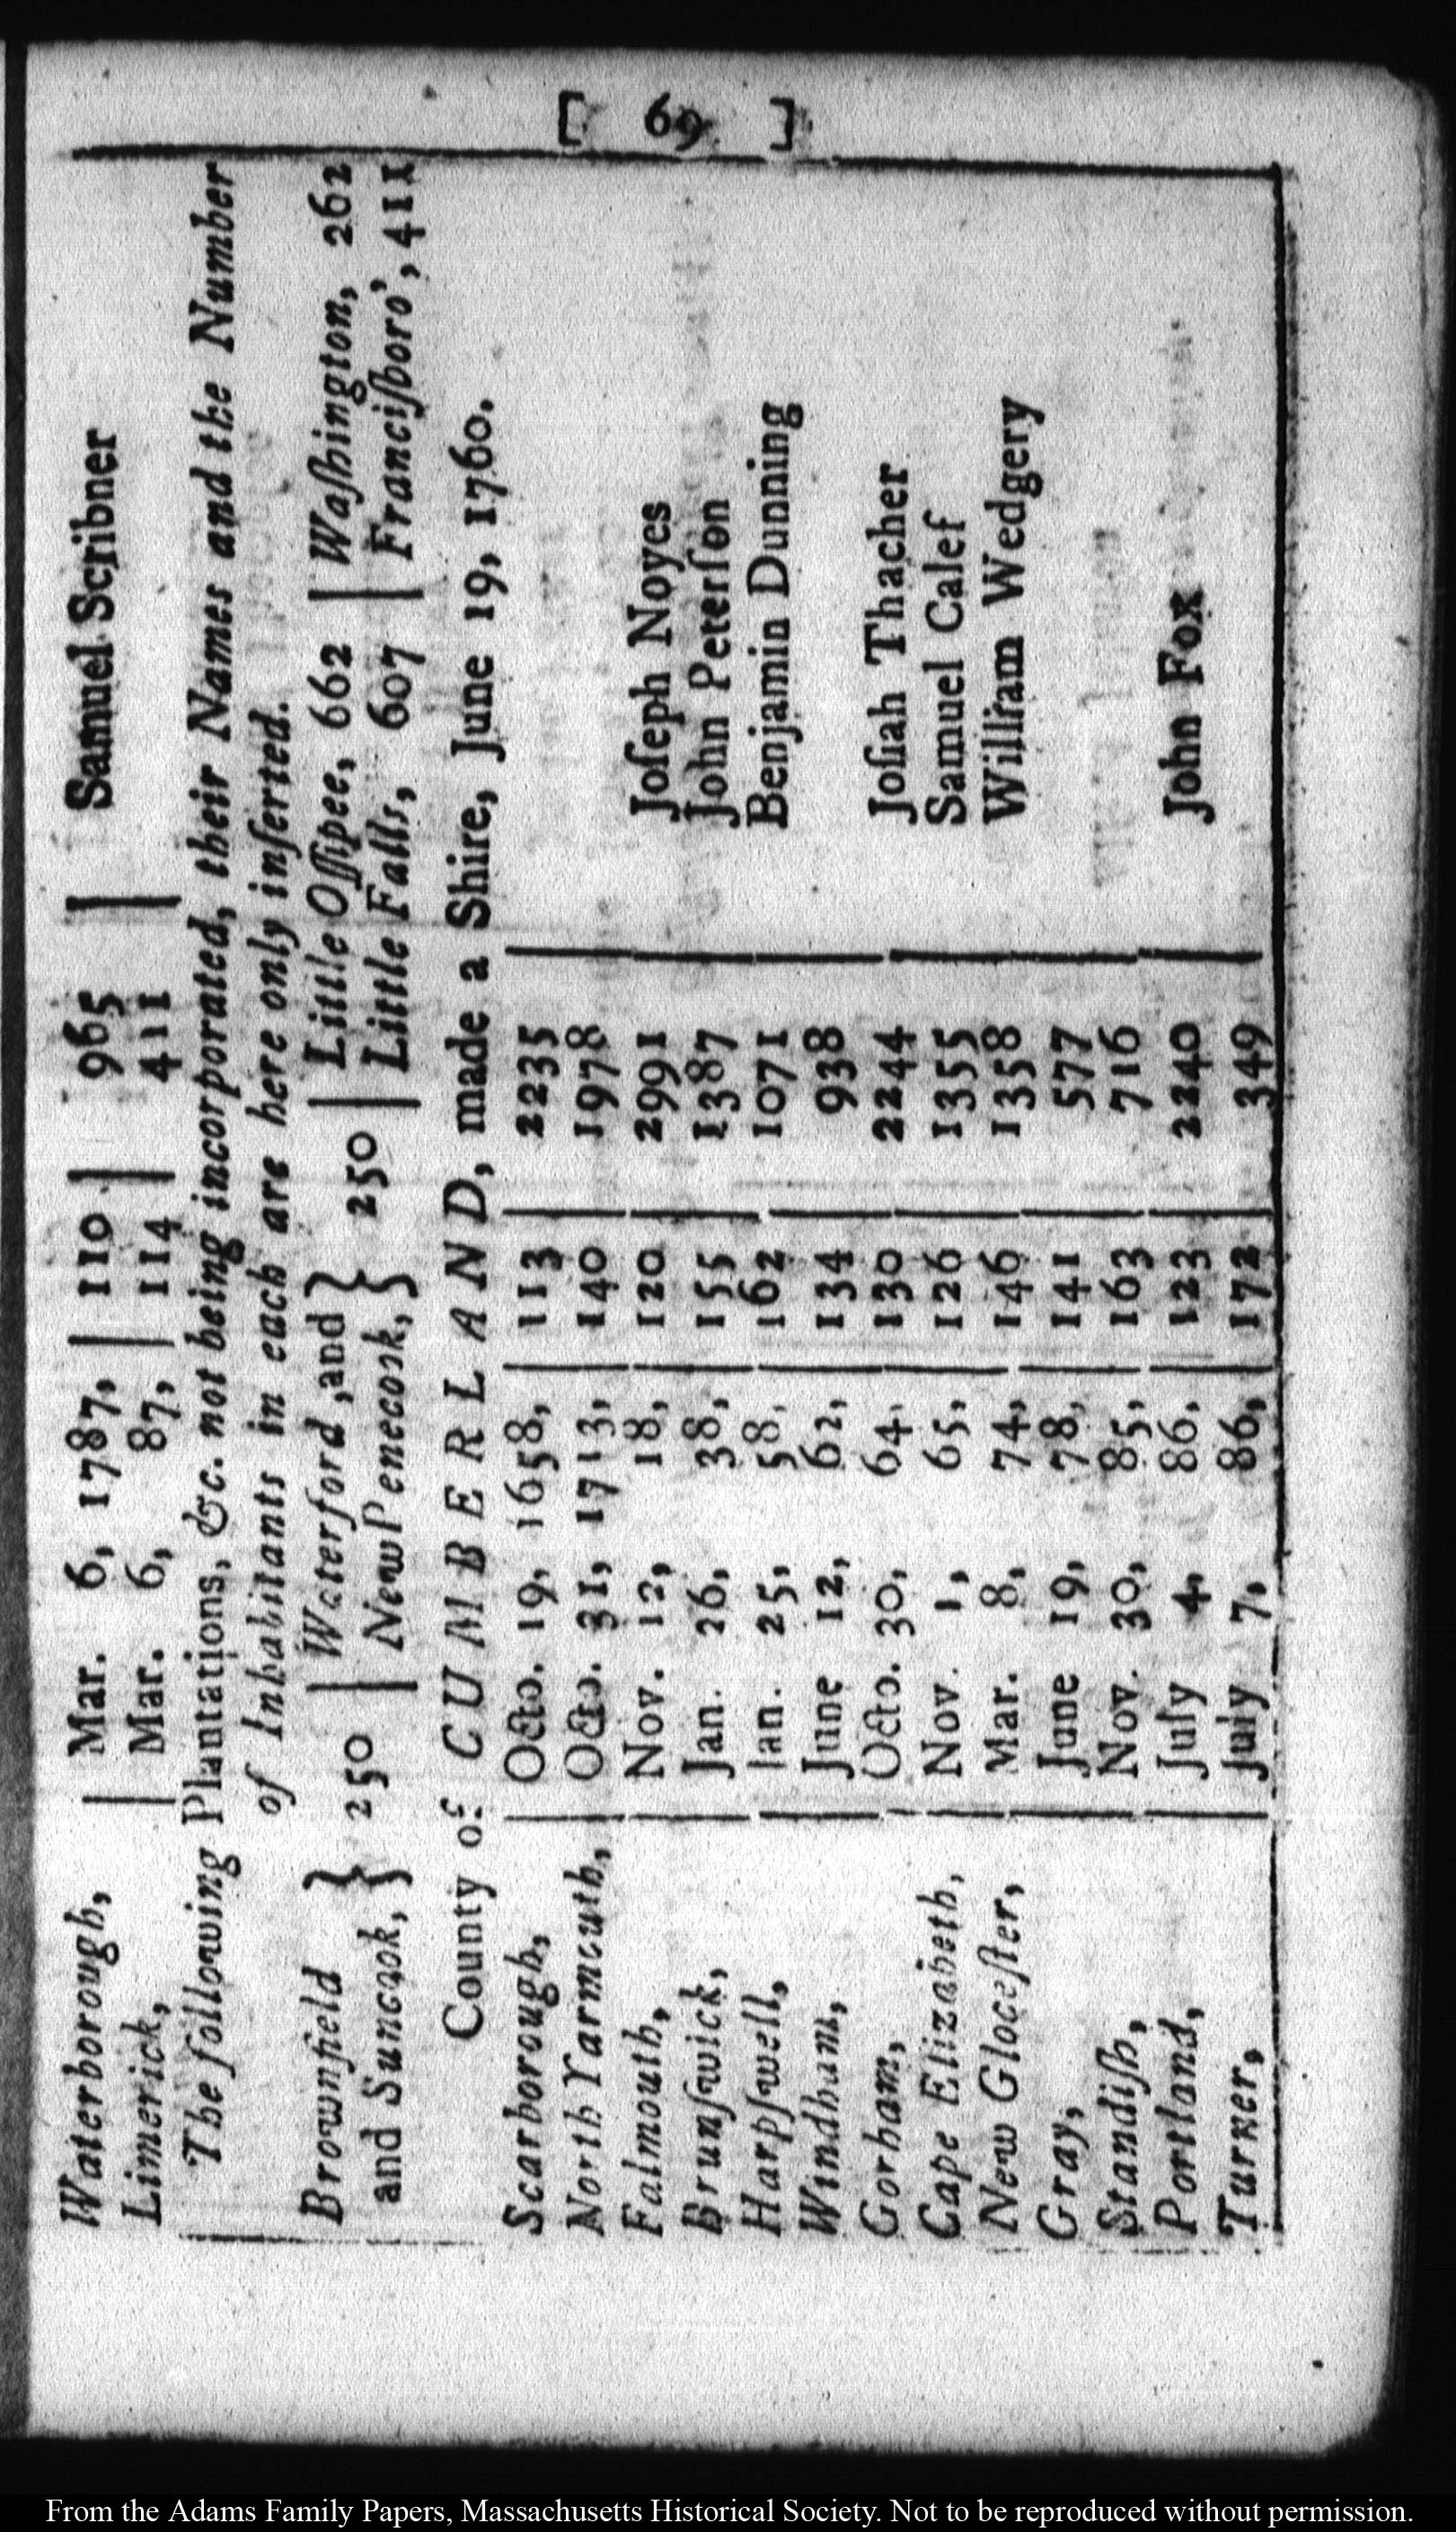 [ 69 ]
Waterborough, | Mar. 6, 1787, | 110 | 965 | Samuel Scribner
Limerick, | Mar. 6, 87, | 114 | 411 |
The following Plantations, &c. not being incorporated, their Names and the Number
of Inhabitants in each are here only inserted.
Brownfield } 250 | Waterford, and } 250 | Little Oſſipee, 662 | Waſhington, 262
and Suncook, } | New Penecook, } | Little Falls, 607 | Franciſboro', 411
County of CUMBERLAND, made a Shire, June 19, 1760.
Scarborough, | Octo. 19, 1658, | 113 | 2235 |
North Yarmouth, | Octo. 31, 1713, | 140 | 1978 |
Falmouth, | Nov. 12, 18, | 120 | 2991 | Joſeph Noyes
Brunſwick, | Jan. 26, 38, | 155 | 1387 | John Peterſon
Harpſwell, | Jan. 25, 58, | 162 | 1071 | Benjamin Dunning
Windham, | June 12, 62, | 134 | 938 |
Gorham, | Octo. 30, 64, | 130 | 2244 | Joſiah Thacher
Cape Elizabeth, | Nov. 1, 65, | 126 | 1355 | Samuel Calef
New Gloceſter, | Mar. 8, 74, | 146 | 1358 | William Wedgery
Gray, | June 19, 78, | 141 | 577 |
Standiſh, | Nov. 30, 85, | 163 | 716 |
Portland, | July 4, 86, | 123 | 2240 | John Fox
Turner, | July 7, 86, | 172 | 349 |
From the Adams Family Papers, Massachusetts Historical Society. Not to be reproduced without permission.